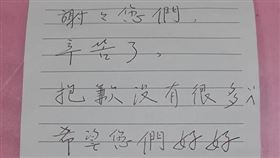 謝々您們,
辛苦了,
抱歉沒有很多
希望您們好好